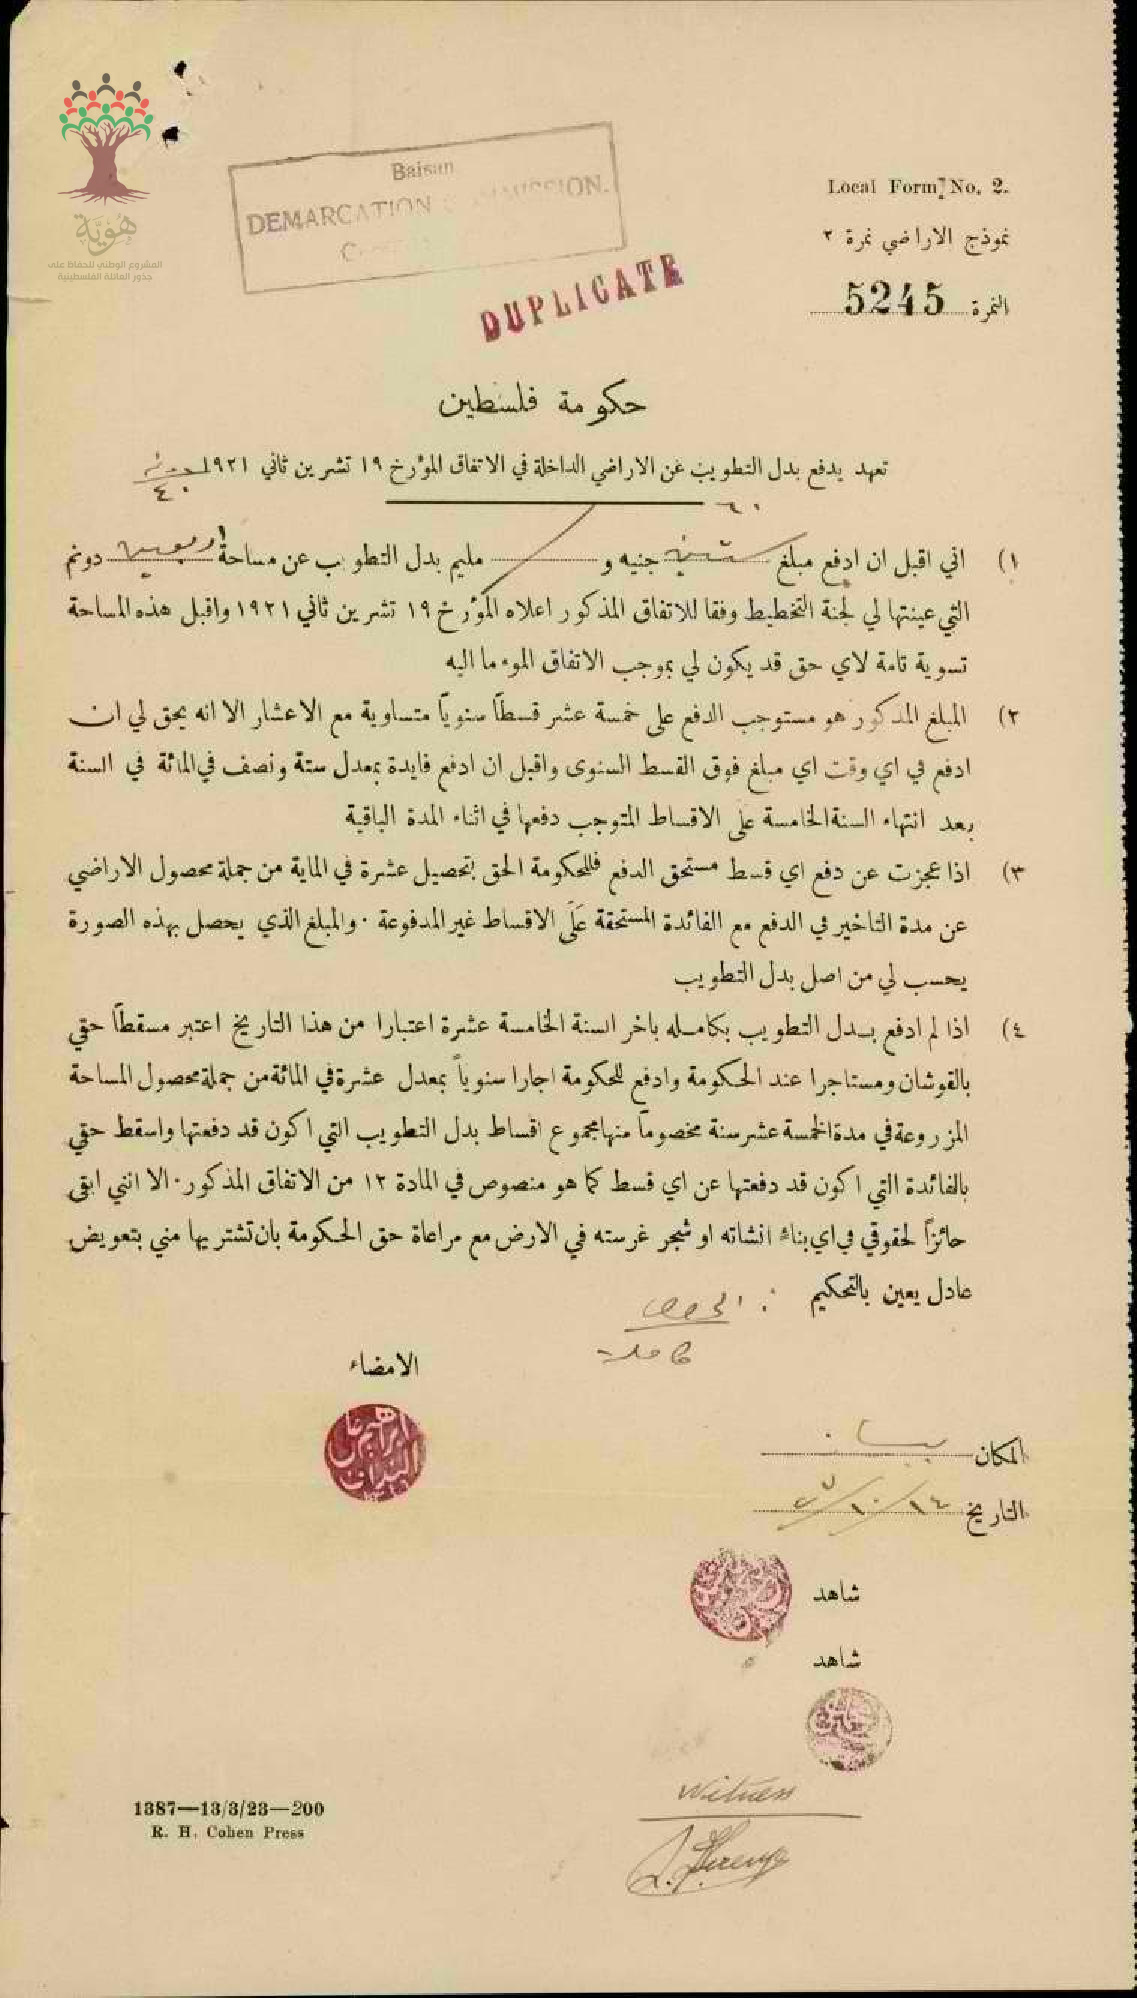 هُوِيَّة
المشروع الوطني للحفاظ على
جذور العائلة الفلسطينية
Baisan
DEMARCATION COMMISSION.
DUPLICATE
Local Form No. 2.
نموذج الاراضي نمرة ٢
النمرة 5245
حكومة فلسطين
تعهد بدفع بدل التطويب عن الاراضي الداخلة في الاتفاق المؤرخ ١٩ تشرين ثاني ١٩٢١
٤٠
٦٠
١) اني اقبل ان ادفع مبلغ ستين جنيه و مليم بدل التطويب عن مساحة اربعين دونم
التي عينتها لي لجنة التخطيط وفقا للاتفاق المذكور اعلاه المؤرخ ١٩ تشرين ثاني ١٩٢١ واقبل هذه المساحة
تسوية تامة لاي حق قد يكون لي بموجب الاتفاق الموء ما اليه
٢) المبلغ المذكور هو مستوجب الدفع على خمسة عشر قسطاً سنوياً متساوية مع الاعشار الا انه يحق لي ان
ادفع في اي وقت اي مبلغ فوق القسط السنوى واقبل ان ادفع فايدة بمعدل ستة ونصف في المائة في السنة
بعد انتهاء السنة الخامسة على الاقساط المتوجب دفعها في اثناء المدة الباقية
٣) اذا عجزت عن دفع اي قسط مستحق الدفع فللحكومة الحق بتحصيل عشرة في الماية من جملة محصول الاراضي
عن مدة التاخير في الدفع مع الفائدة المستحقة عَلَى الاقساط غير المدفوعة · والمبلغ الذي يحصل بهذه الصورة
يحسب لي من اصل بدل التطويب
٤) اذا لم ادفع بدل التطويب بكامله باخر السنة الخامسة عشرة اعتبارا من هذا التاريخ اعتبر مسقطاً حقي
بالقوشان ومستاجرا عند الحكومة وادفع للحكومة اجارا سنوياً بمعدل عشرة في المائة من جملة محصول المساحة
المزروعة في مدة الخمسة عشر سنة مخصوماً منها مجموع اقساط بدل التطويب التي اكون قد دفعتها واسقط حقي
بالفائدة التي اكون قد دفعتها عن اي قسط كما هو منصوص في المادة ١٢ من الاتفاق المذكور · الا انني ابقى
حائزاً لحقوقي في اي بناء انشاته او شجر غرسته في الارض مع مراعاة حق الحكومة بان تشتريها مني بتعويض
عادل يعين بالتحكيم
كاملة
الامضاء
المكان بيسان
التاريخ ١٤/١٠/
شاهد
شاهد
Witness
1387—13/3/23—200
R. H. Cohen Press